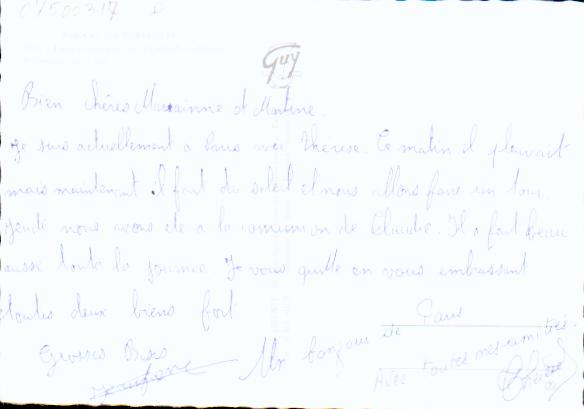 04500317
Guy
Bien chères Marrainne et Martine.
Je suis actuellement a Paris avec Thérèse. Ce matin il pleuvait
mais maintenant il fait du soleil et nous allons faire un tour.
Jeudi nous avons été a la communion de Claudie. Il a fait beau
aussi toute la journee. Je vous quitte en vous embrassant
toutes deux biens fort
Grosses Bises
Un bonjour de Paris
Avec toutes mes amitiés.